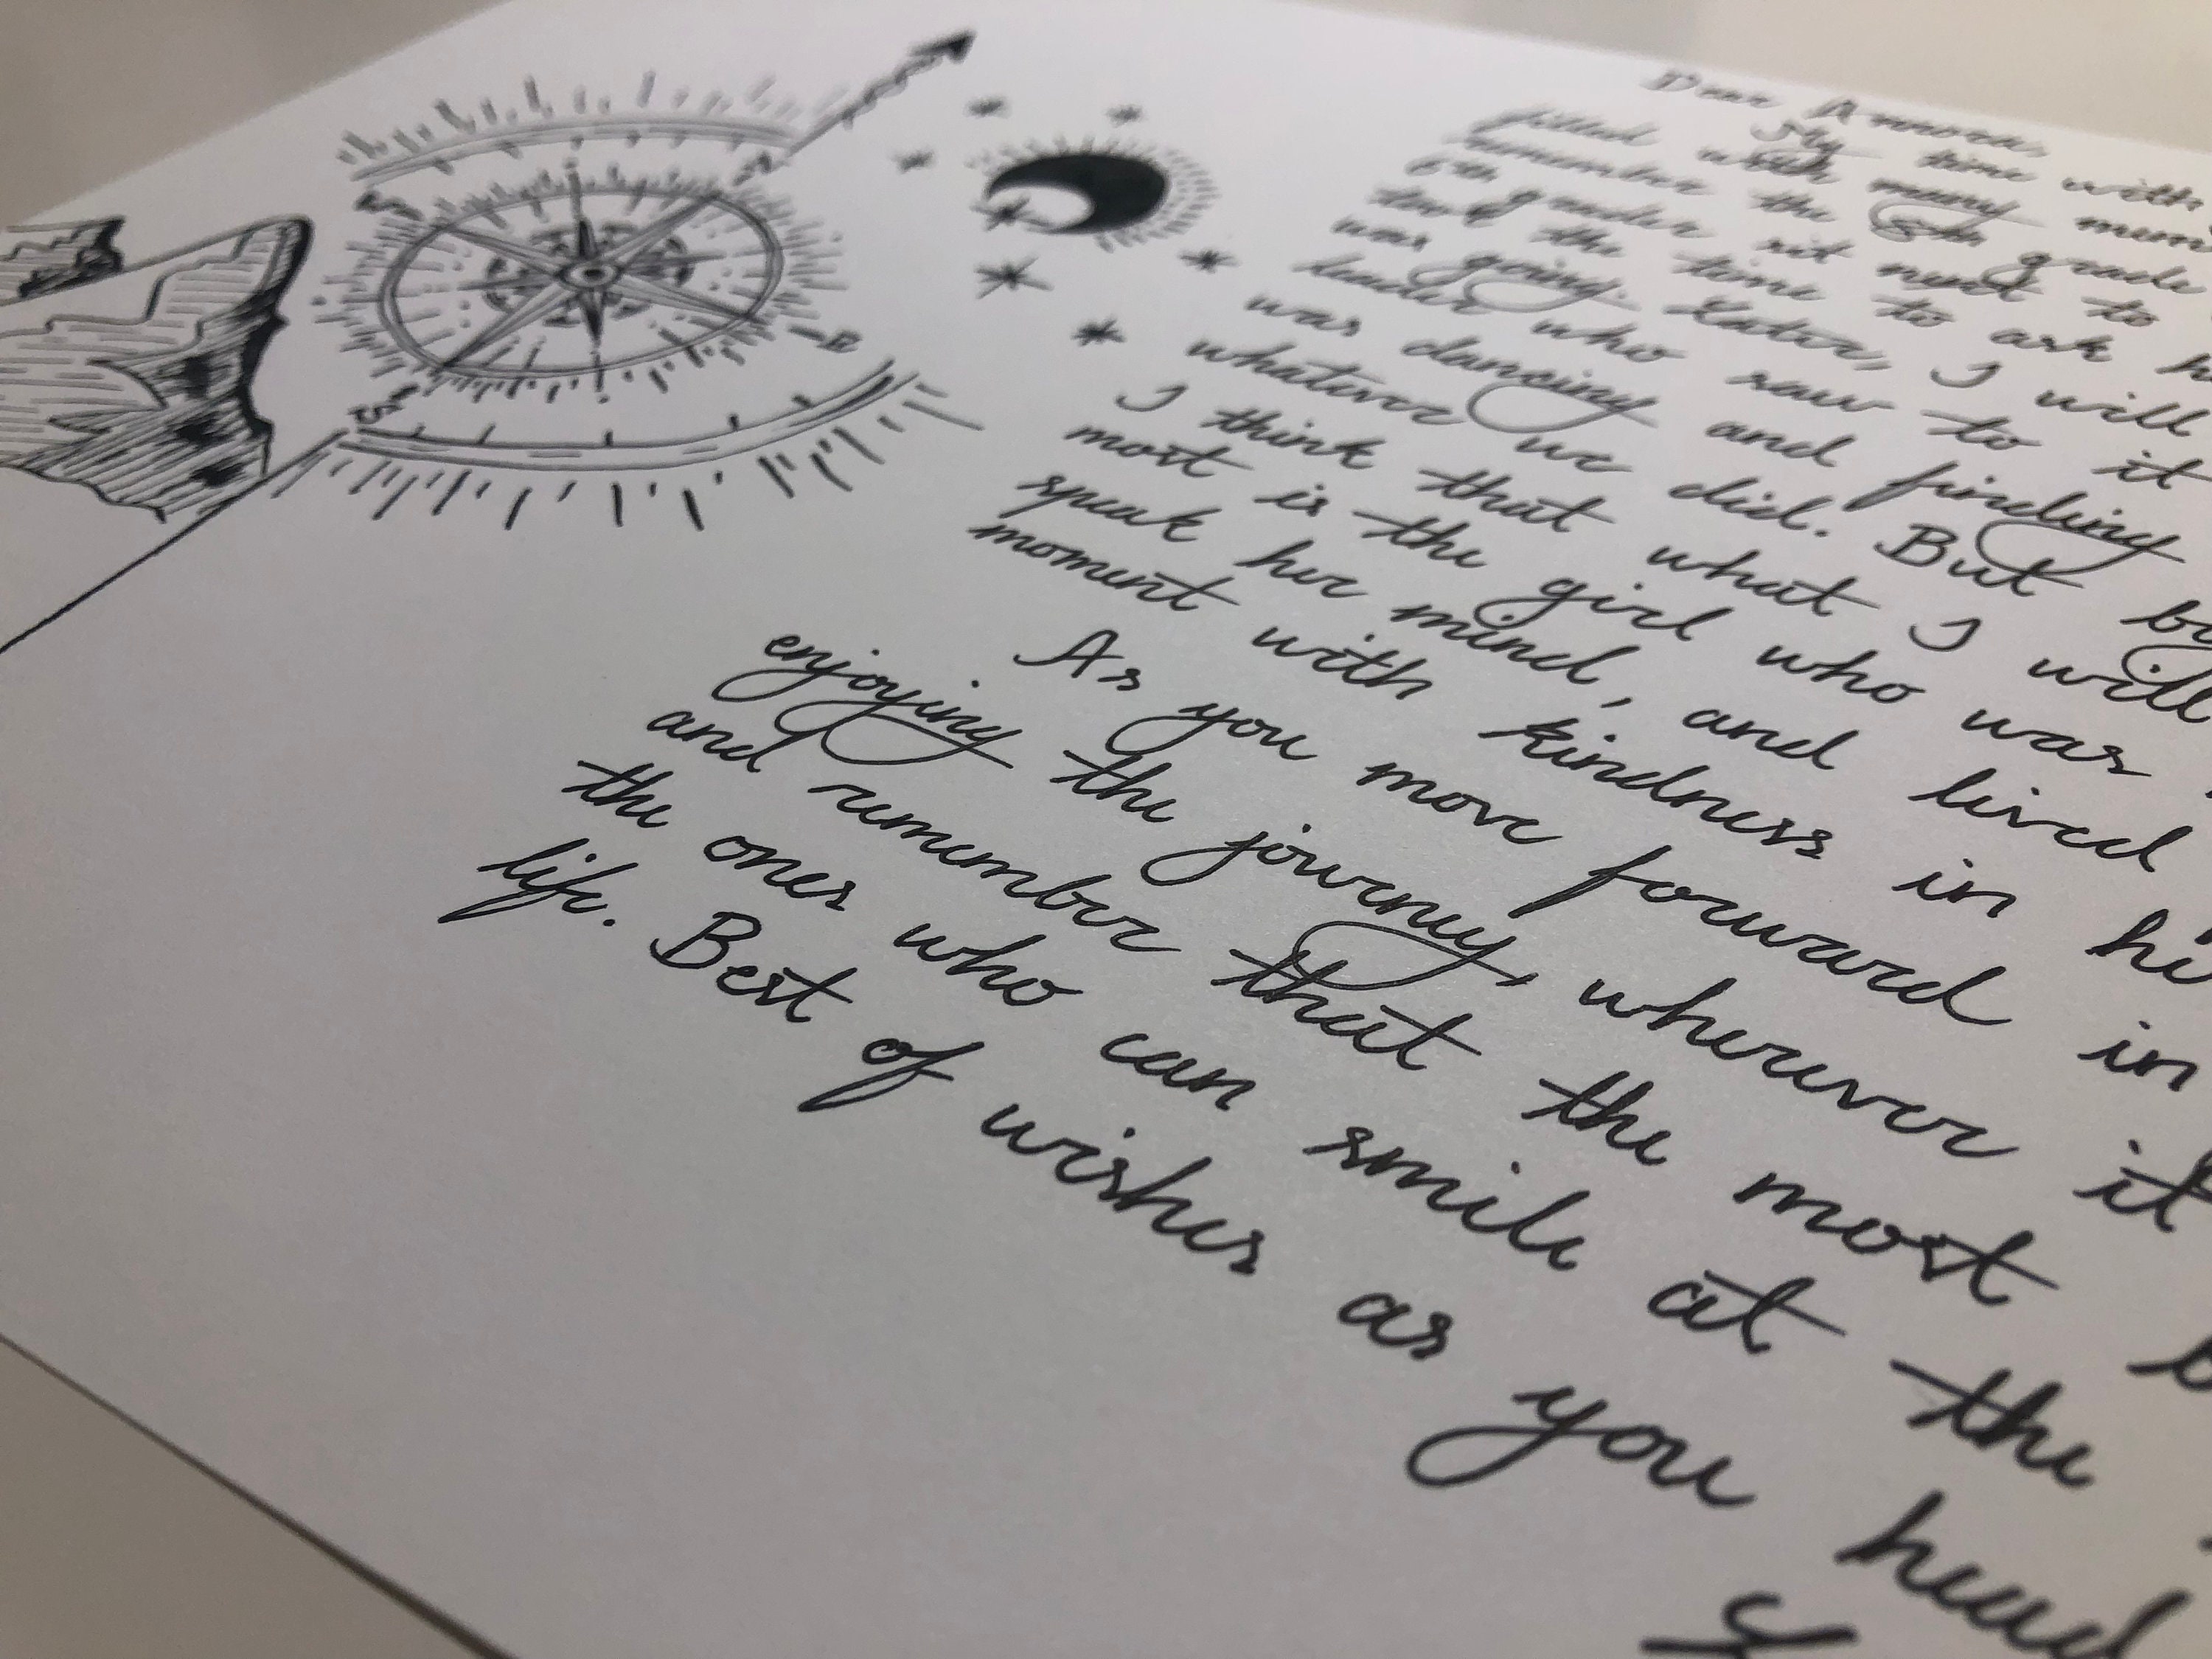 Dear
My time with
filled with many mem
remember the 5th grade
6th grader sit next to
took the time to ask h
was going. Later, I will
leader who saw to it
was dancing and finding
whatever we did. But by
I think that what I will
most is the girl who was
speak her mind, and lived
moment with kindness in he
As you move forward in
enjoying the journey, wherever it
and remember that the most b
the ones who can smile at the
life. Best of wishes as you head